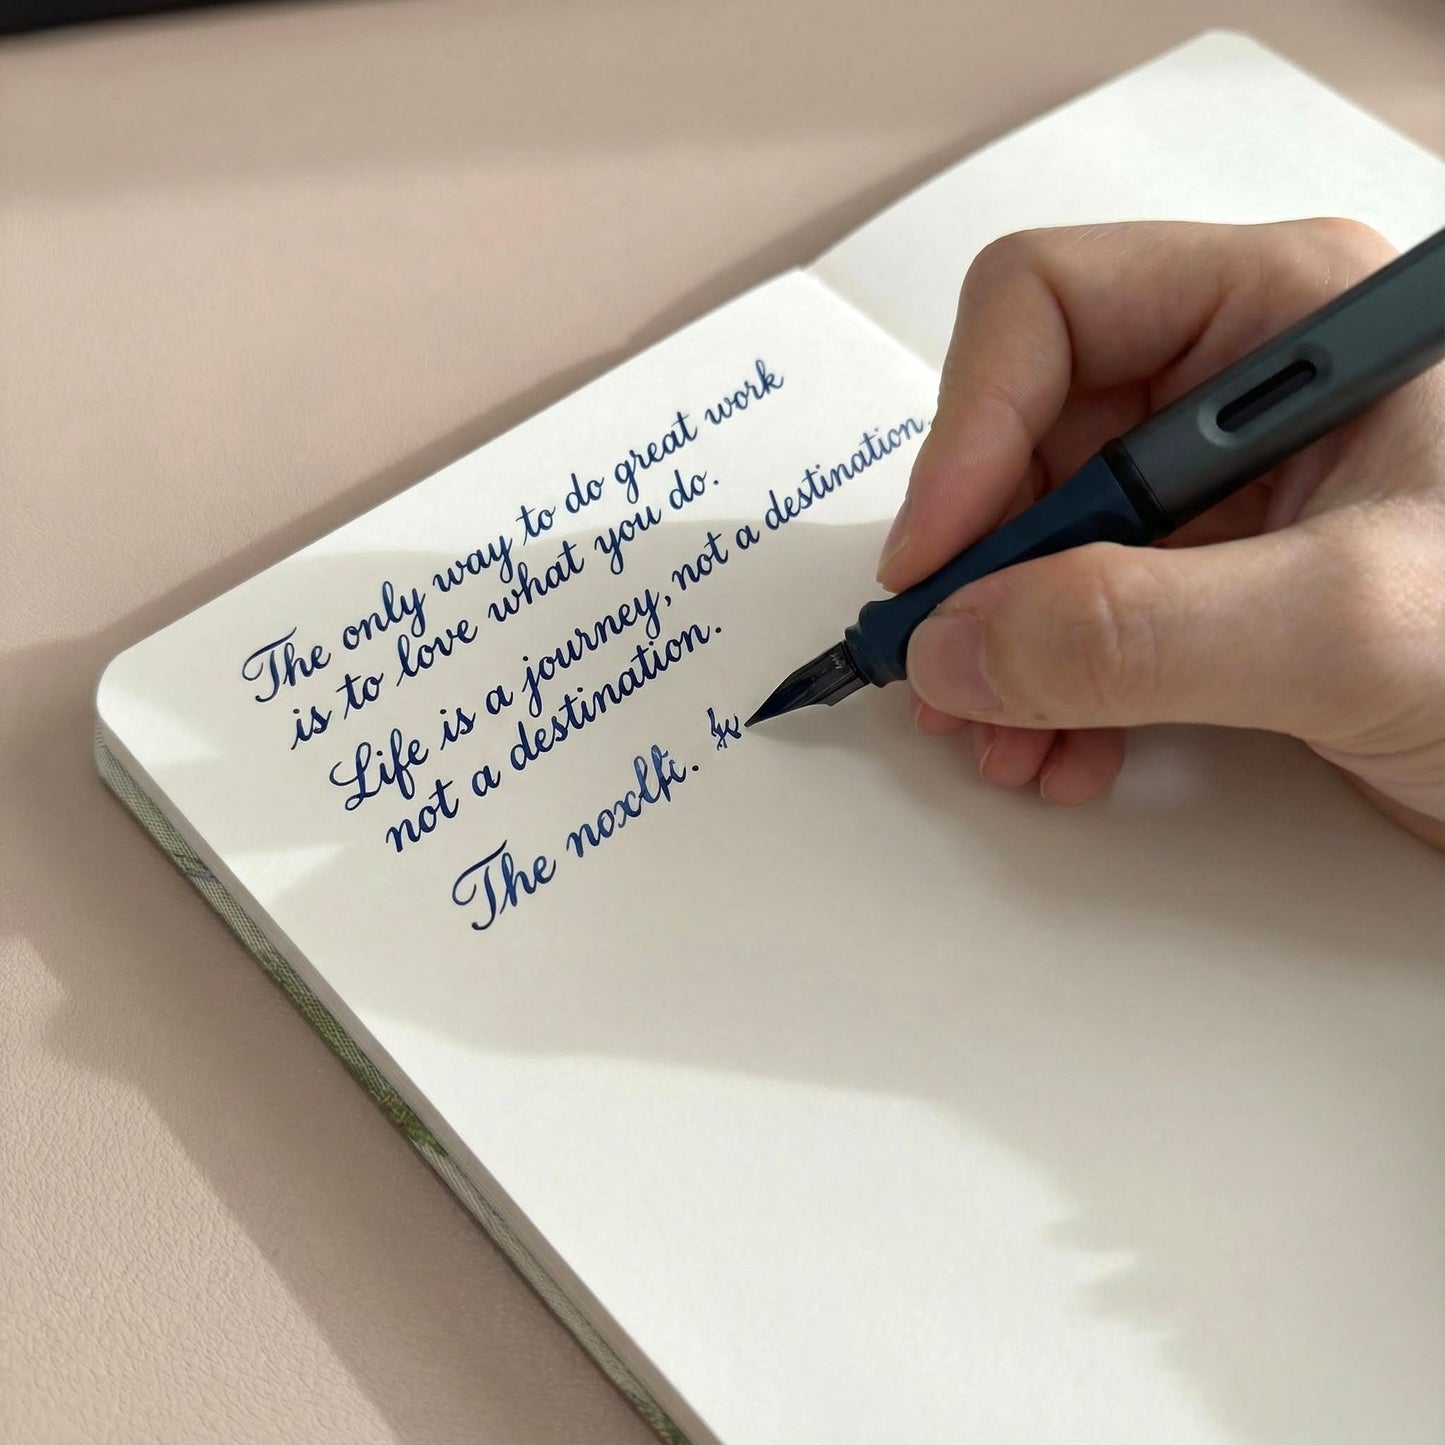 The only way to do great work
is to love what you do.
Life is a journey, not a destination.
not a destination.
The